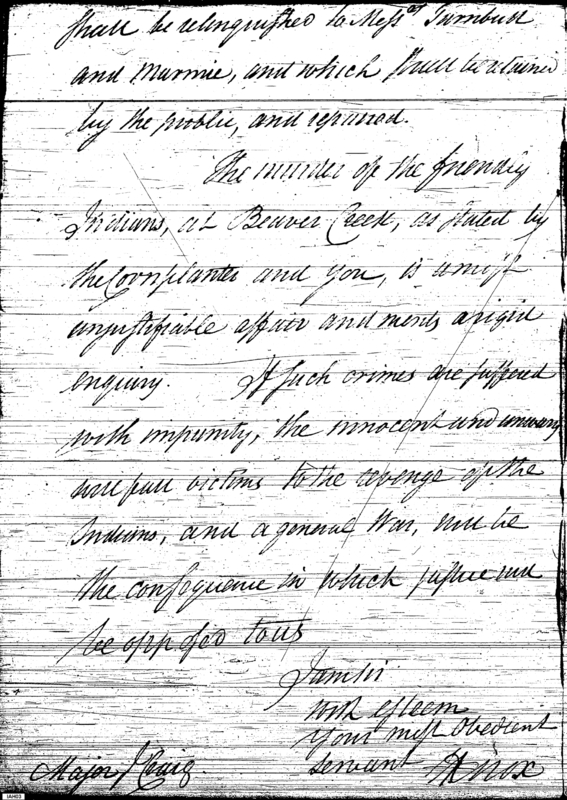 shall be relinquished to Mess.rs Turnbull
and Marmie, and which shall be retained
by the public, and repaired.
The murder of the friendly
Indians, at Beaver Creek, as stated by
the Cornplanter and you, is a most
unjustifiable affair and merits a rigid
enquiry. If such crimes are suffered
with impunity, the innocent and unwary
will fall victims to the revenge of the
Indians, and a general War, will be
the consequence in which justice will
be opposed to us
I am sir
with esteem
Your most Obedient
servant HKnox
Major J Craig.
IAH03